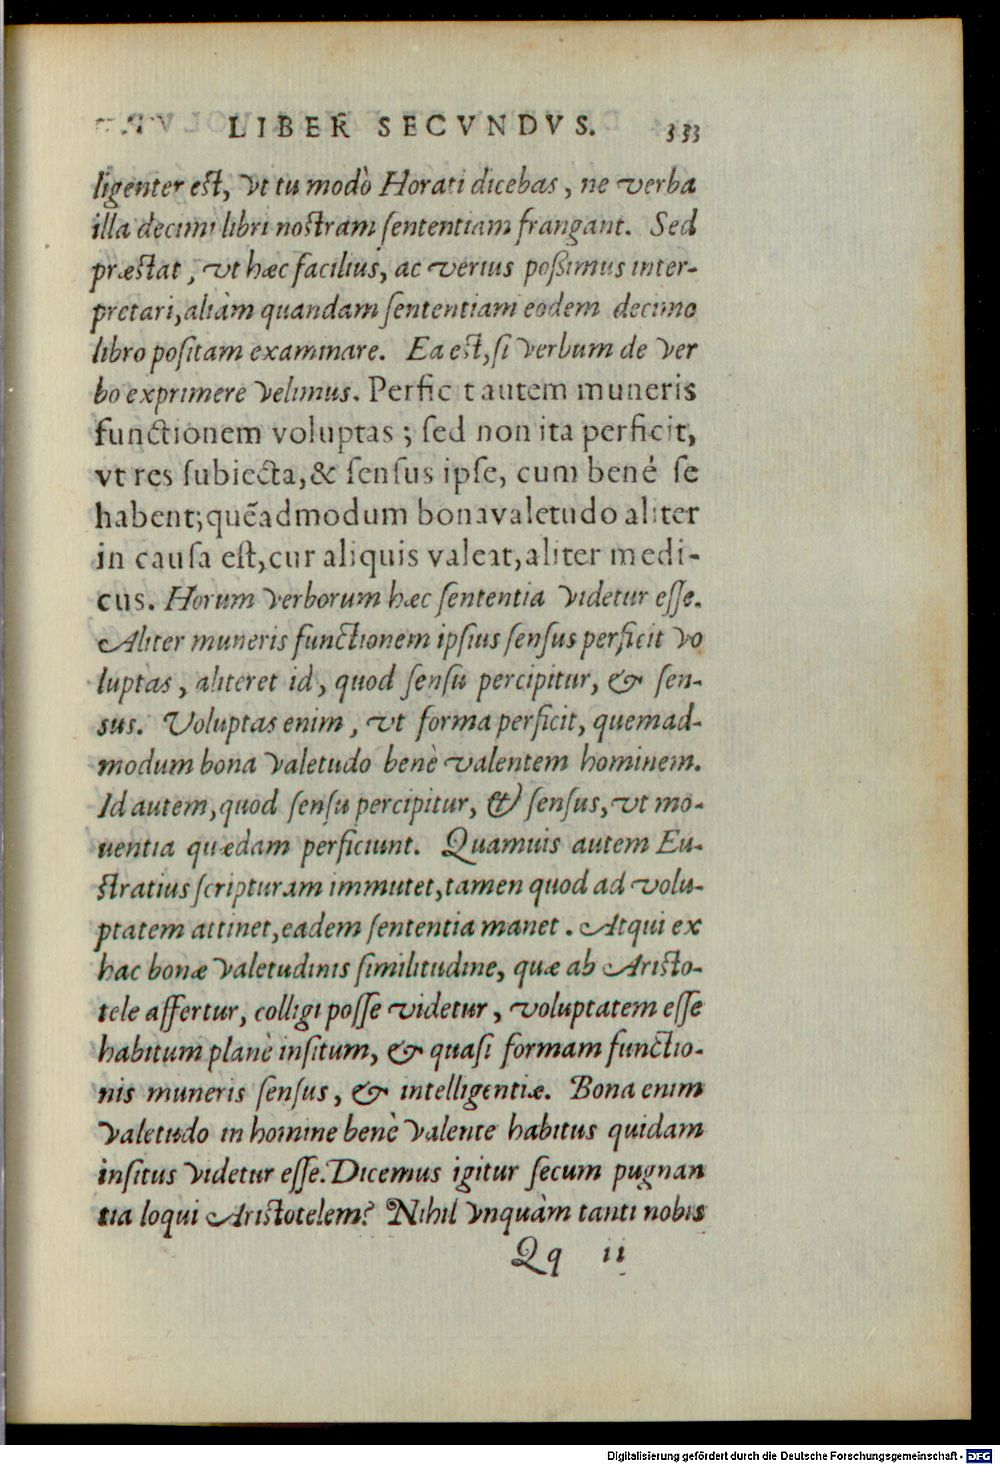 LIBER SECVNDVS. 333
ligenter est, vt tu modò Horati dicebas, ne verba
illa decimi libri nostram sententiam frangant. Sed
præstat, vt hæc facilius, ac verius poßimus inter-
pretari, aliàm quandam sententiam eodem decimo
libro positam examinare. Ea est, si verbum de ver
bo exprimere velimus. Perficit autem muneris
functionem voluptas; sed non ita perficit,
vt res subiecta, & sensus ipse, cum bené se
habent; quẽadmodum bona valetudo aliter
in causa est, cur aliquis valeat, aliter medi-
cus. Horum verborum hæc sententia videtur esse.
Aliter muneris functionem ipsius sensus perficit vo
luptas, aliter et id, quod sensu percipitur, & sen-
sus. Voluptas enim, vt forma perficit, quemad-
modum bona valetudo benè valentem hominem.
Id autem, quod sensu percipitur, & sensus, vt mo-
uentia quædam perficiunt. Quamuis autem Eu-
stratius scripturam immutet, tamen quod ad volu-
ptatem attinet, eadem sententia manet. Atqui ex
hac bonæ valetudinis similitudine, quæ ab Aristo-
tele affertur, colligi posse videtur, voluptatem esse
habitum planè insitum, & quasi formam functio-
nis muneris sensus, & intelligentiæ. Bona enim
valetudo in homine benè valente habitus quidam
insitus videtur esse. Dicemus igitur secum pugnan
tia loqui Aristotelem? Nihil vnquàm tanti nobis
Qq ii
Digitalisierung gefördert durch die Deutsche Forschungsgemeinschaft - DFG